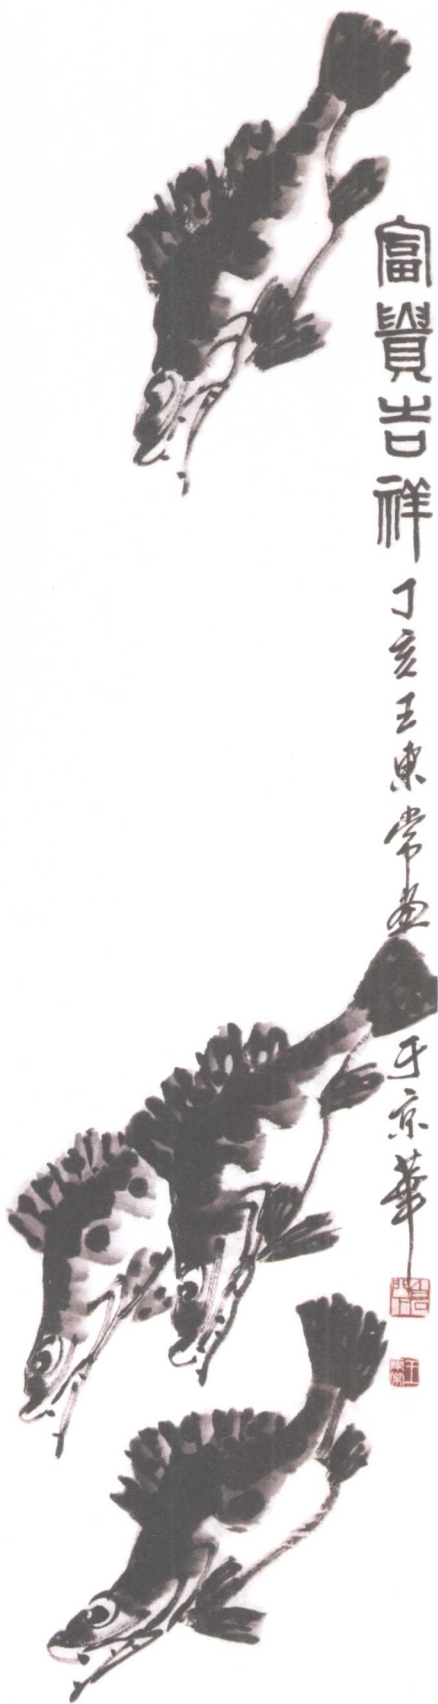 富貴吉祥
丁亥王東常畫于京華
王東常